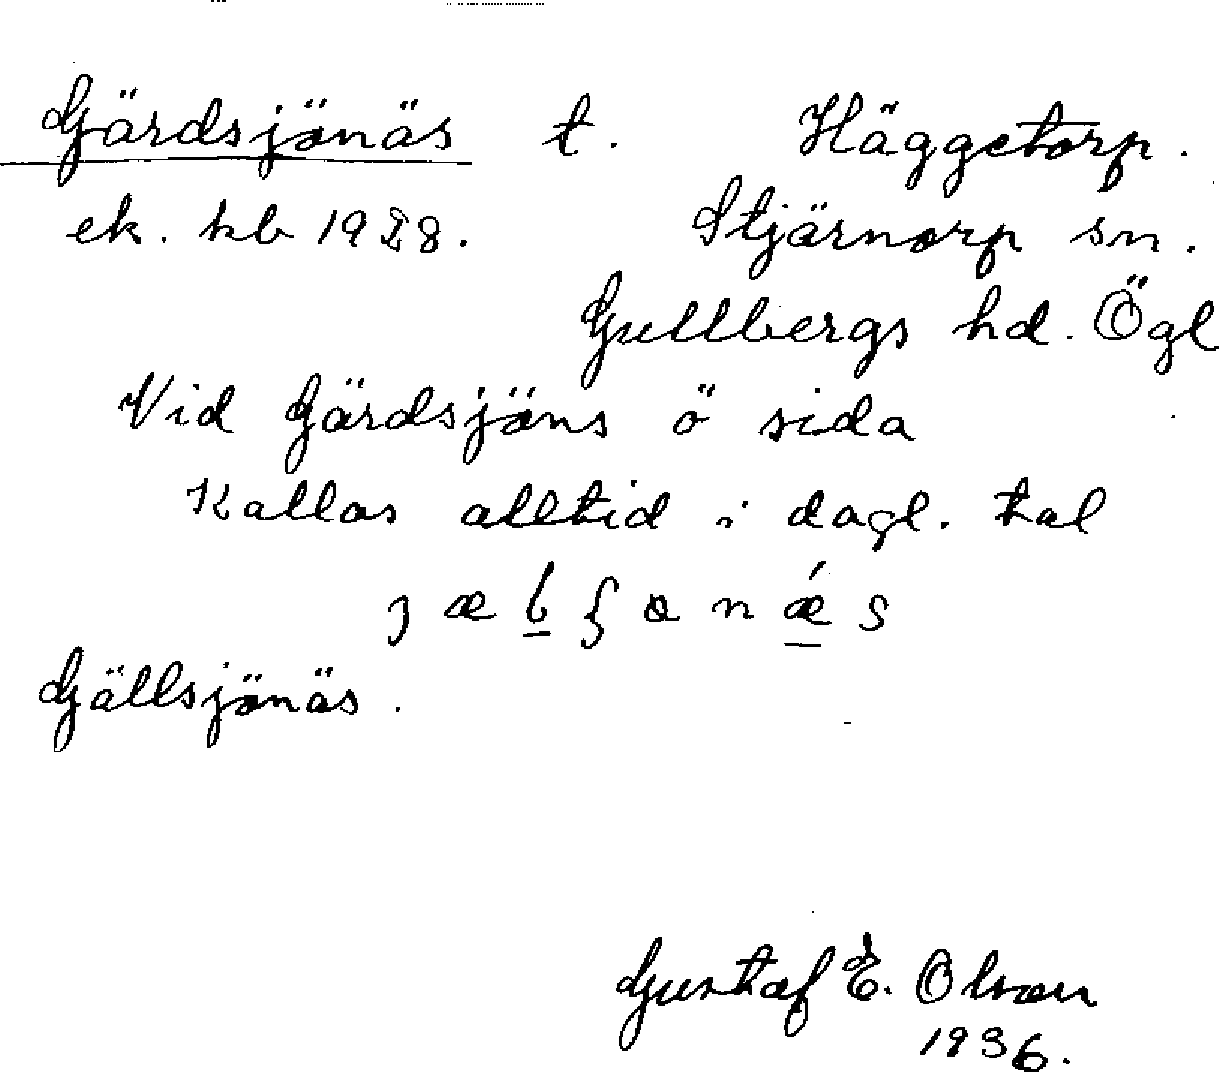 Gärdsjönäs t. Häggetorp.
ek. kb 1928. Stjärnorp sn.
Gullbergs hd. Ögl
Vid Gärdsjöns ö sida
Kallas alltid i dagl. tal
Gällsjönäs.
Gustaf E. Olson
1936.